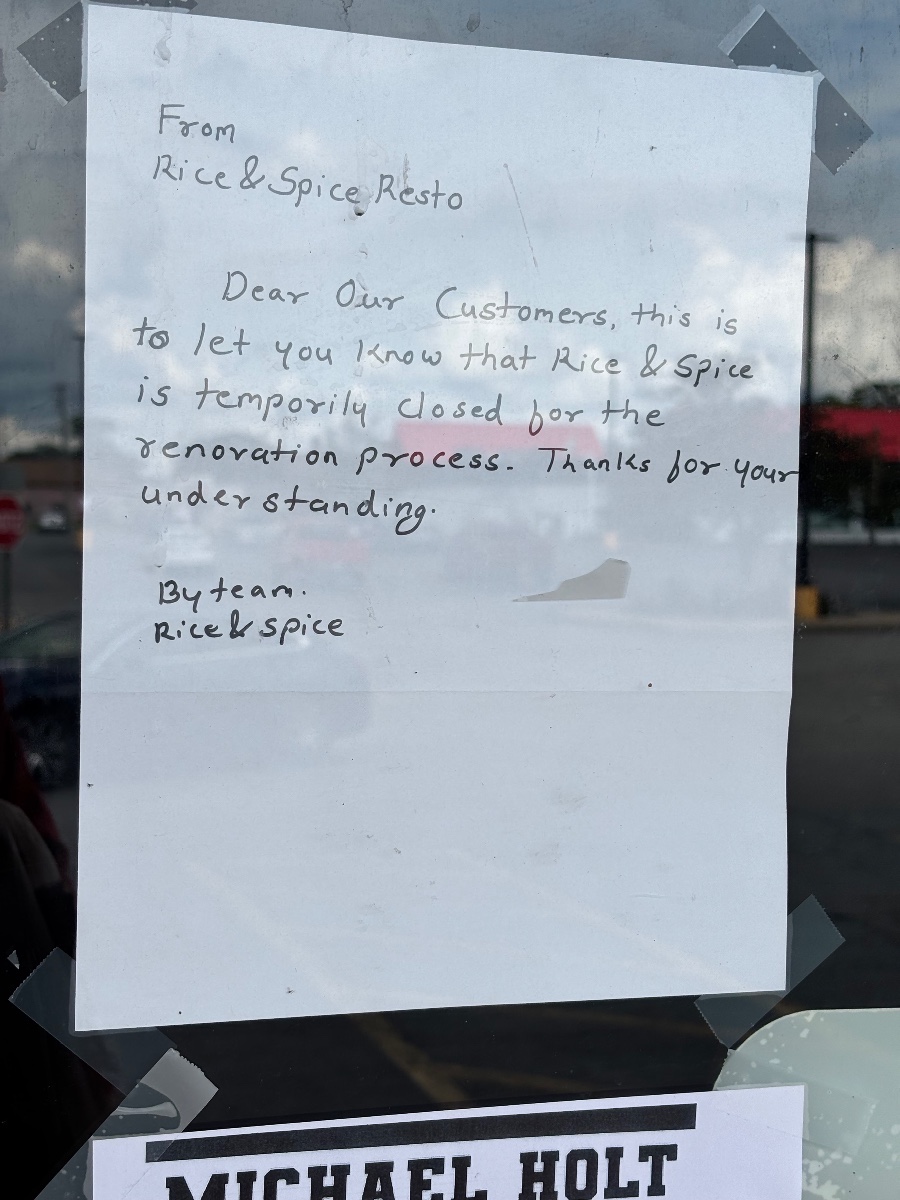 From
Rice & Spice Resto
Dear Our Customers, this is
to let you know that Rice & Spice
is temporily closed for the
renovation process. Thanks for your
understanding.
By team.
Rice & spice
MICHAEL HOLT